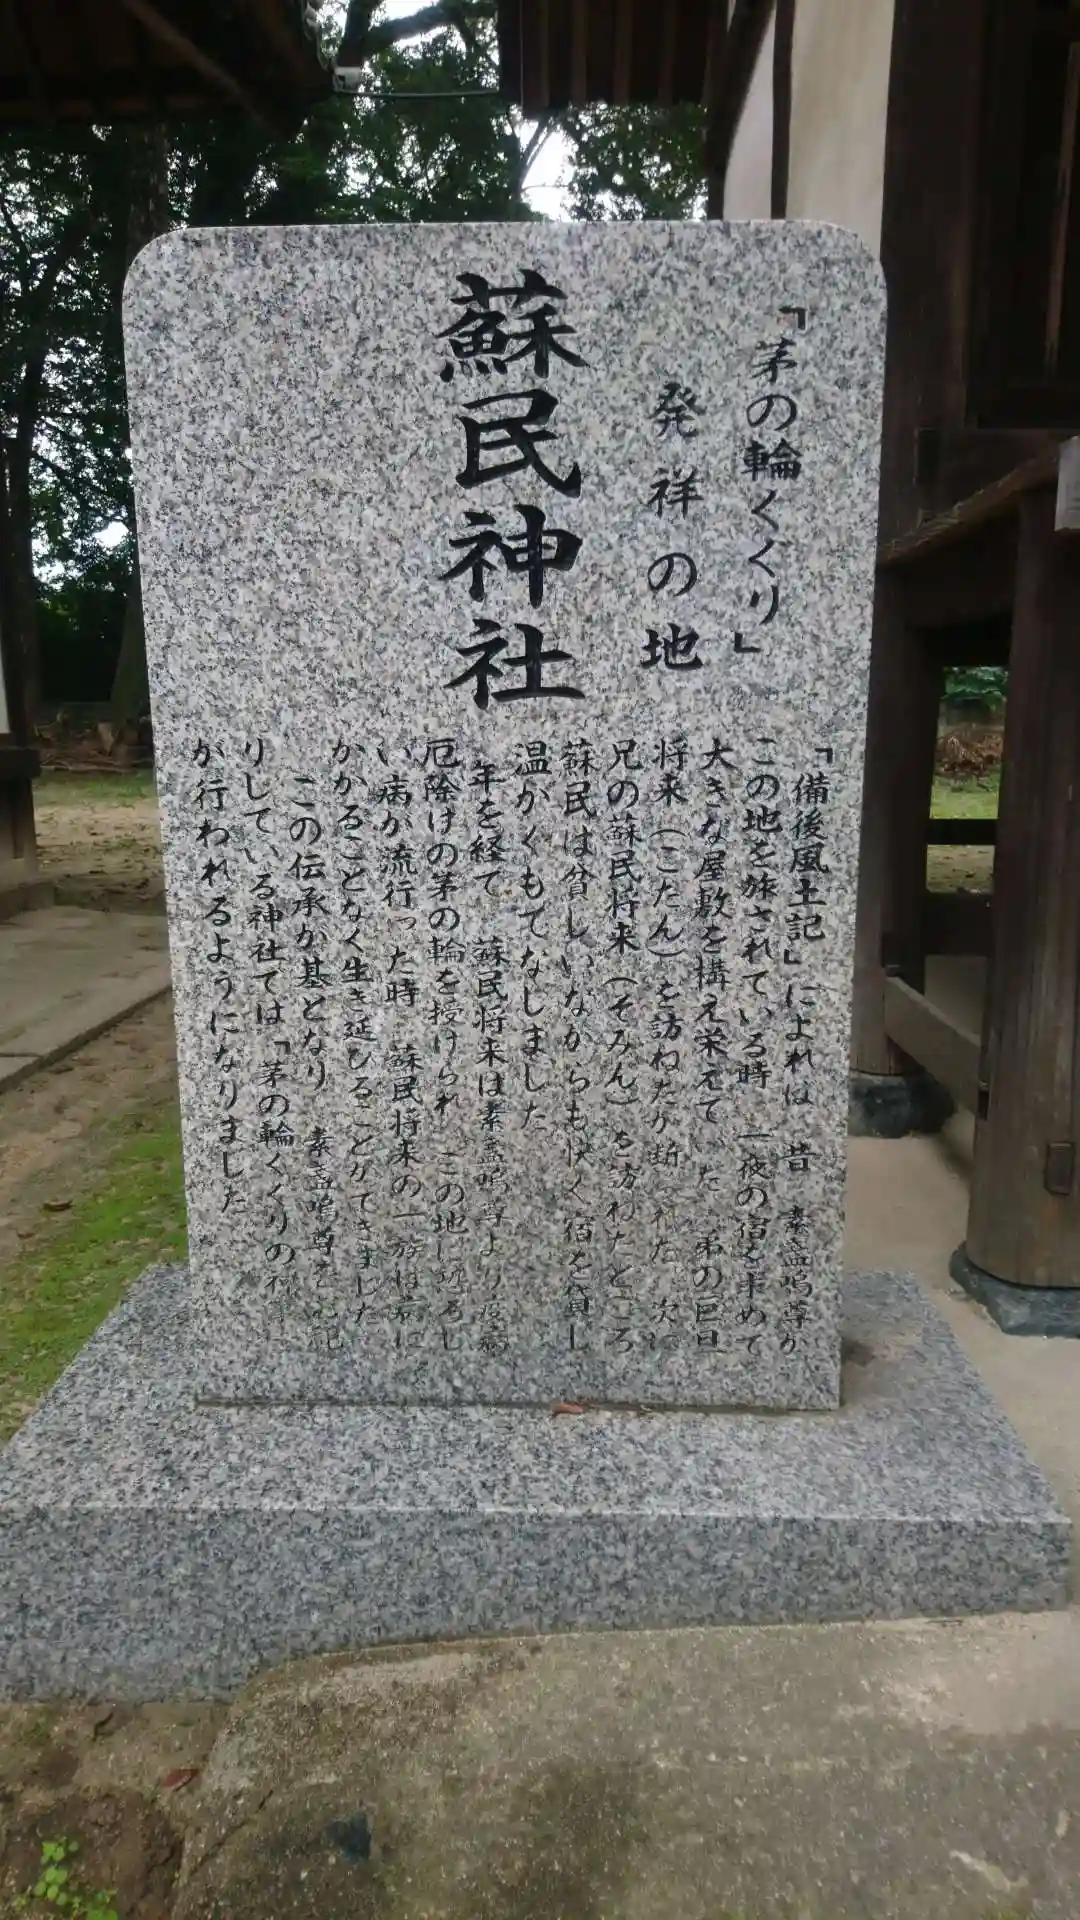 「茅の輪くくり」
発祥の地
蘇民神社
「備後風土記」によれは 昔 素盞嗚尊が
この地を旅されている時 一夜の宿を求めて
大きな屋敷を構え栄えて た 弟の巨旦
将来(こたん)を訪ねたが断 れた 次に
兄の蘇民将来(そみん)を訪ねたところ
蘇民は貧しいなからも快く宿を貸し
温かくもてなしました
年を経て 蘇民将来は素盞嗚尊より疫病
厄除けの茅の輪を授けられ この地に 恐ろし
い病が流行った時 蘇民将来の一族は病に
かかることなく生き延ひることかてきました
この伝承が基となり 素盞嗚尊を 祀
りしている神社ては「茅の輪くくりの神事
が行われるようになりました